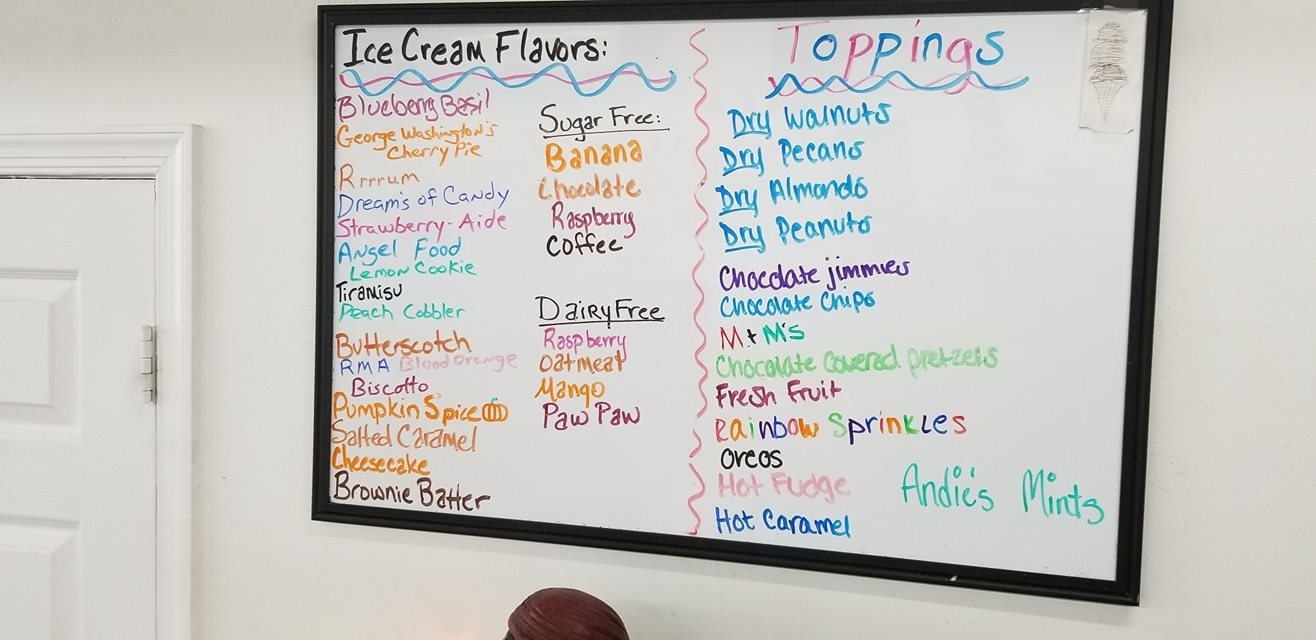 Ice Cream Flavors:
Blueberry Basil
George Washington's
Cherry Pie
Rrrrum
Dream's of Candy
Strawberry-Aide
Angel Food
Lemon Cookie
Tiramisu
Peach Cobbler
Butterscotch
RMA Blood Orange
Biscotto
Pumpkin Spice
Salted Caramel
Cheesecake
Brownie Batter
Sugar Free:
Banana
Chocolate
Raspberry
Coffee
Dairy Free
Raspberry
Oatmeat
Mango
Paw Paw
Toppings
Dry Walnuts
Dry Pecans
Dry Almonds
Dry Peanuts
Chocolate jimmies
Chocolate Chips
M+M's
Chocolate Covered pretzels
Fresh Fruit
Rainbow Sprinkles
Oreos
Hot Fudge
Hot Caramel
Andie's Mints